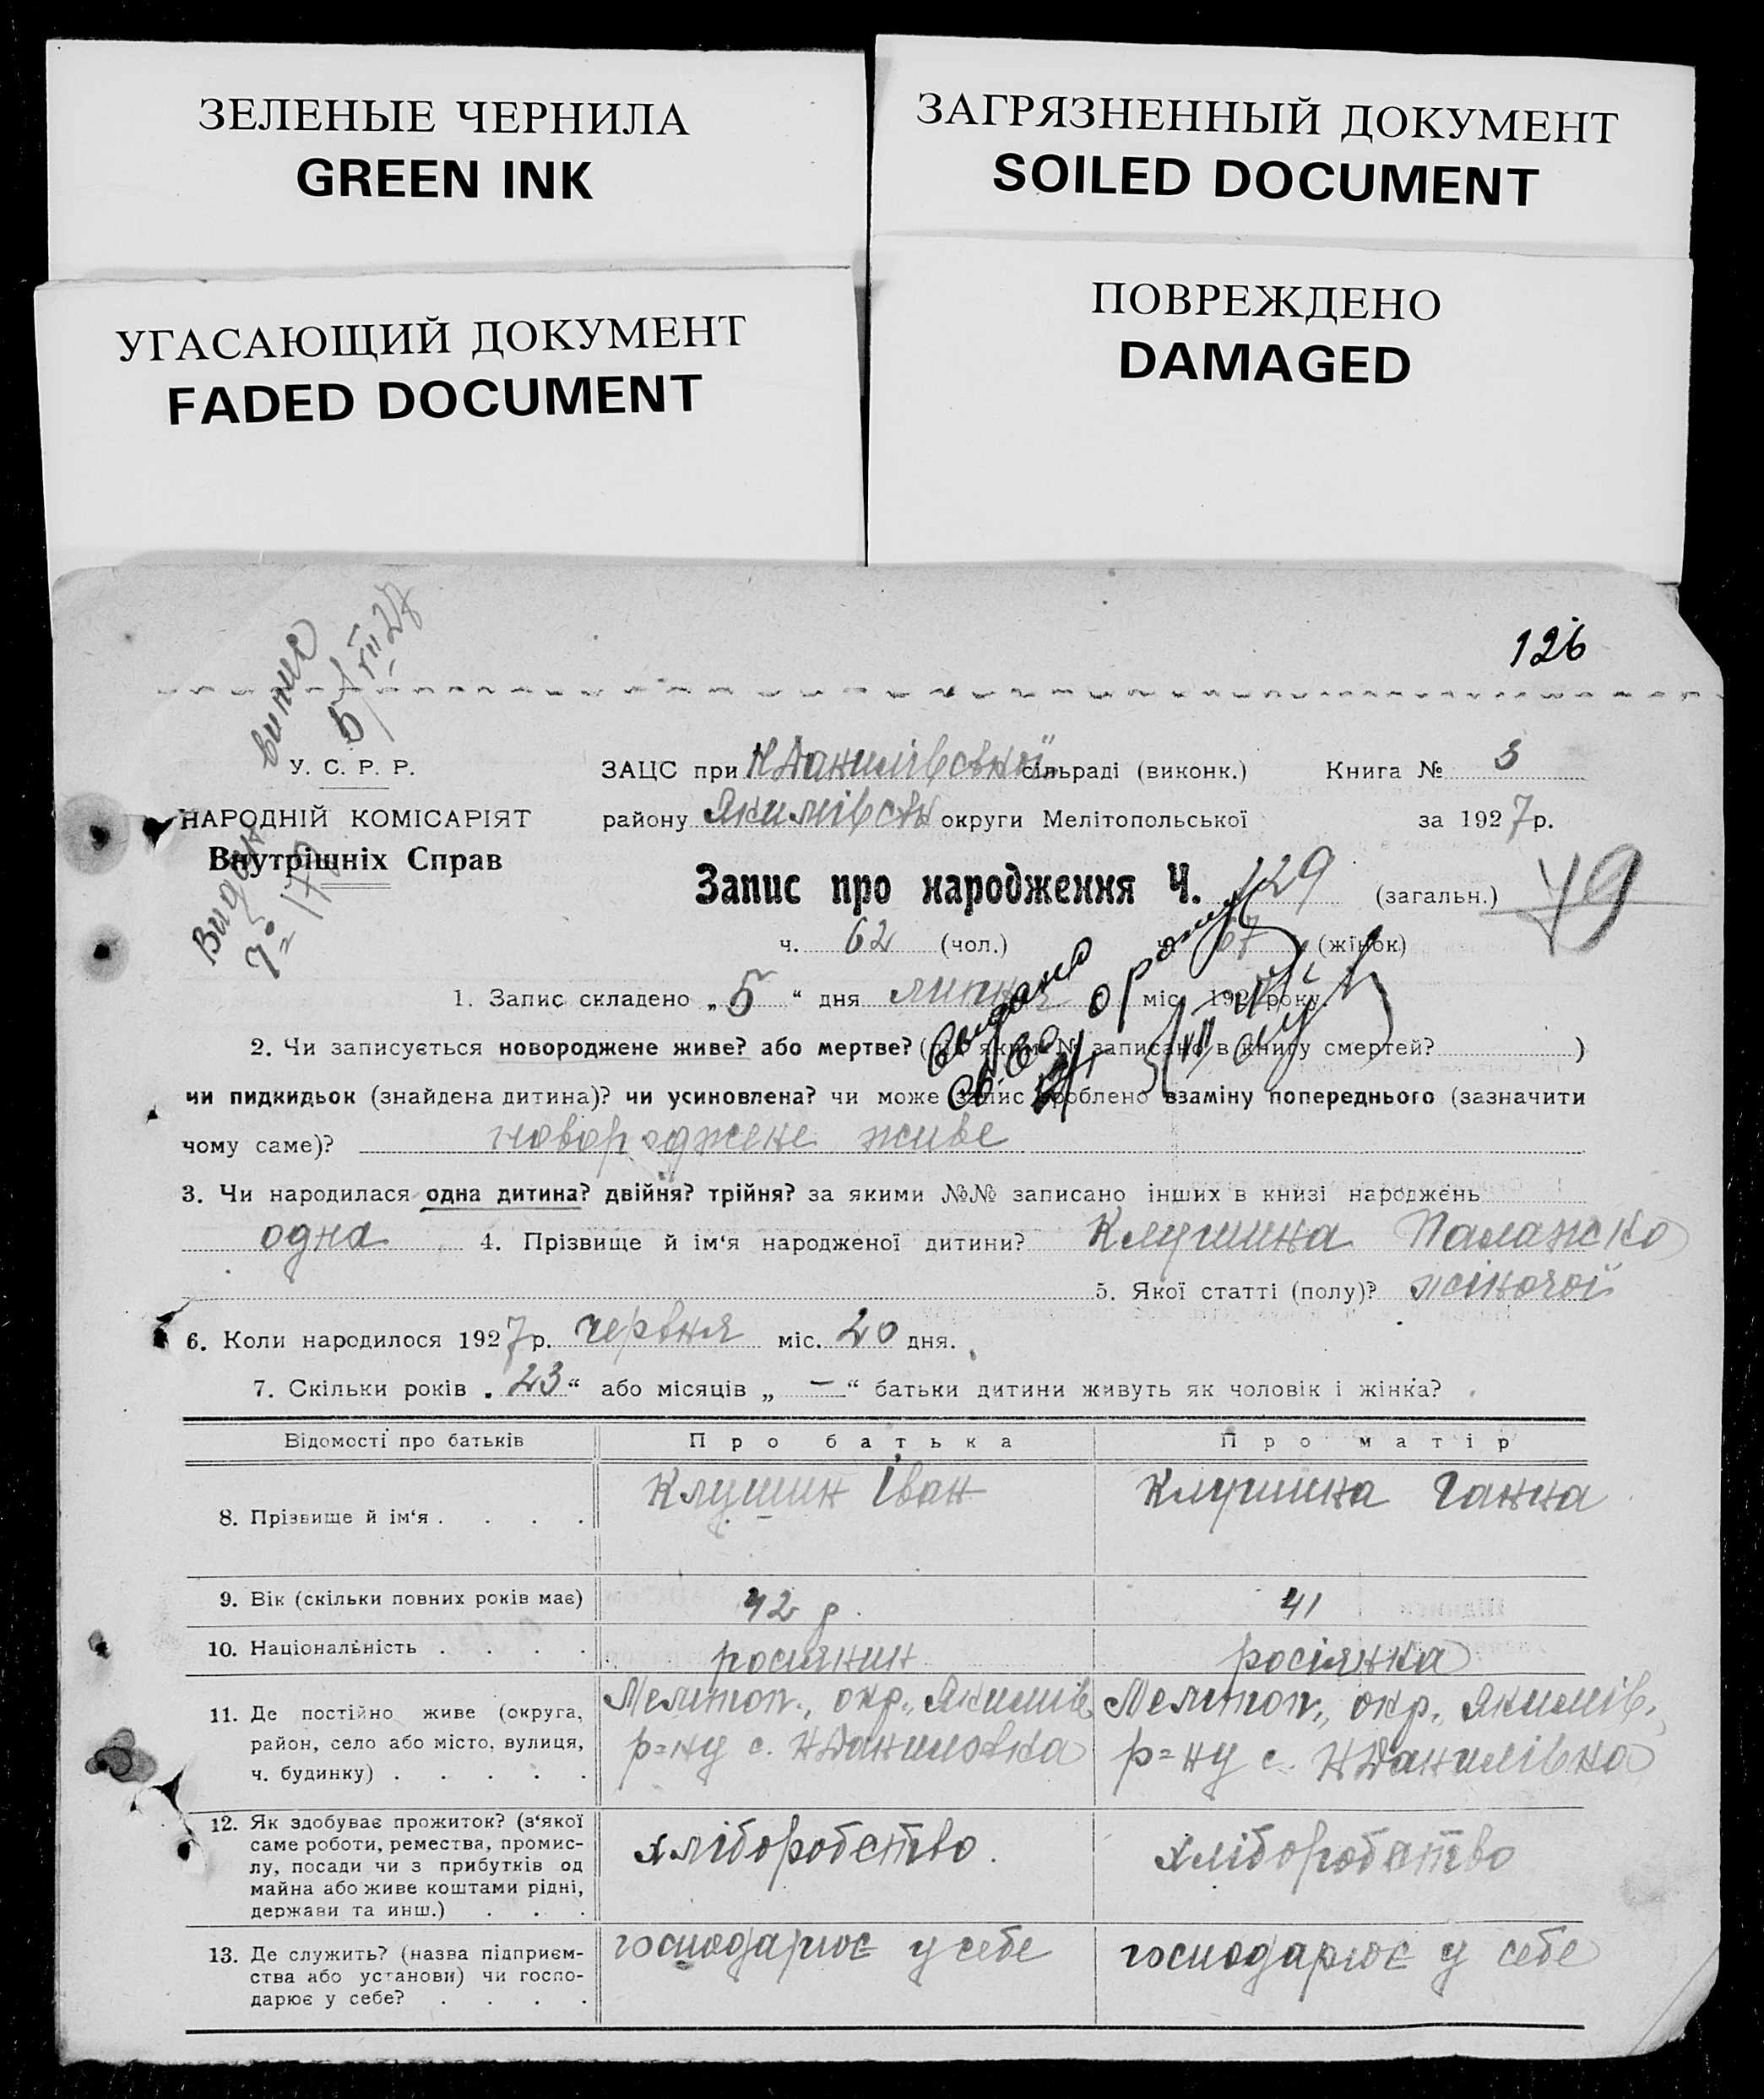 ЗЕЛЕНЫЕ ЧЕРНИЛА
GREEN INK
ЗАГРЯЗНЕННЫЙ ДОКУМЕНТ
SOILED DOCUMENT
УГАСАЮЩИЙ ДОКУМЕНТ
FADED DOCUMENT
ПОВРЕЖДЕНО
DAMAGED
126
5/VII 27
У. С. Р. Р.
ЗАЦС при Н Данилівської сільраді (виконк.) Книга № 3
НАРОДНІЙ КОМІСАРІЯТ
району Якимівськ округи Мелітопольської за 1927 р.
Внутрішніх Справ
Запис про народження Ч. 129 (загальн.) 49
ч. 62 (чол.) ч. 67 (жінок)
1. Запис складено „5“ дня липня міс. 1927 року.
2. Чи записується новороджене живе? або мертве? (під яким № записано в книгу смертей? )
чи пидкидьок (знайдена дитина)? чи усиновлена? чи може запис зроблено взаміну попереднього (зазначити
чому саме)? новороджене живе
3. Чи народилася одна дитина? двійня? трійня? за якими №№ записано інших в книзі народжень
одна 4. Прізвище й ім‘я народженої дитини? Клушина Палажка
5. Якої статті (полу)? жіночої
6. Коли народилося 1927 р. червня міс. 20 дня.
7. Скільки років „23“ або місяців „—“ батьки дитини живуть як чоловік і жінка?
Відомості про батьків Про батька Про матір
8. Прізвище й ім‘я . . . . Клушин Іван Клушина Ганна
9. Вік (скільки повних років має) 42 р. 41
10. Національність . . . . росіянин росіянка
11. Де постійно живе (округа, район, село або місто, вулиця, ч. будинку) . . . . .
Мелитоп., окр., Якимів.
р=ну с. Н Даниловка
Мелитоп., окр., Якимів.,
р=ну с. Н Данилівка
12. Як здобуває прожиток? (з‘якої
саме роботи, ремества, промис-
лу, посади чи з прибутків од
майна або живе коштами рідні,
держави та инш.) . . .
хліборобство. хліборобство
13. Де служить? (назва підприєм-
ства або установи) чи госпо-
дарює у себе? . . . .
господарює у себе господарює у себе